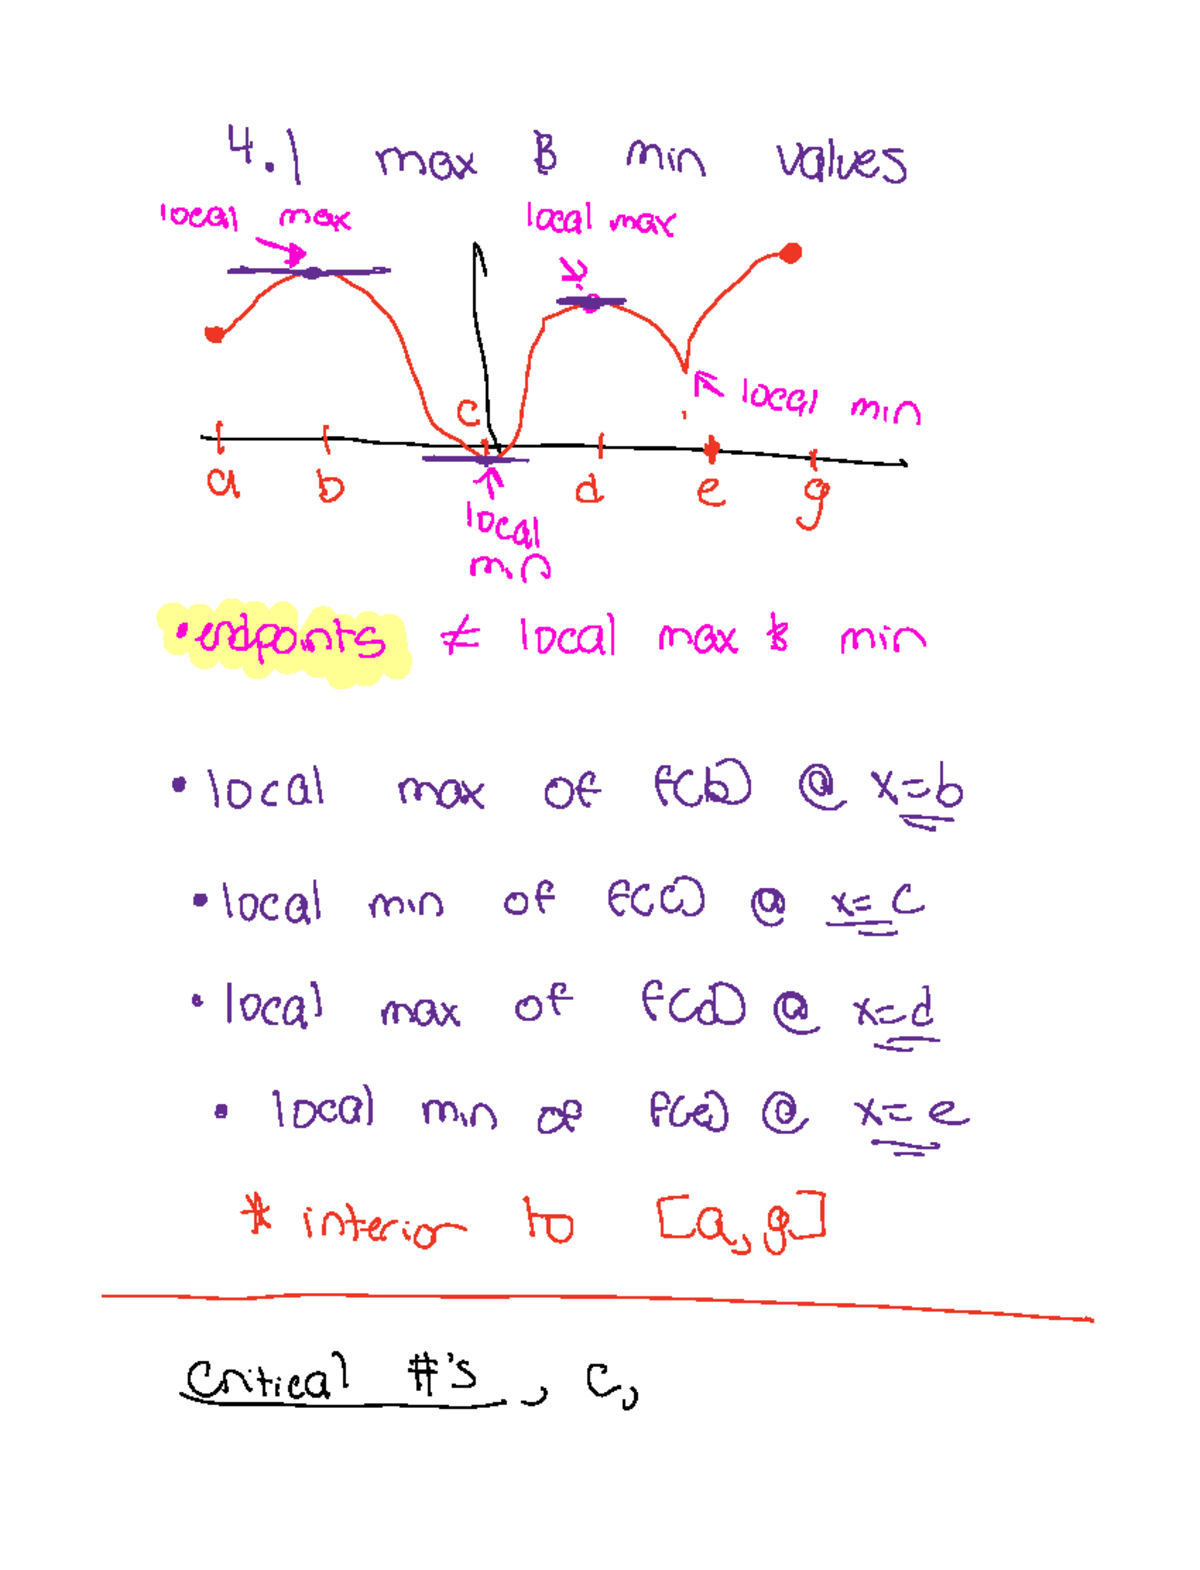 4.1 max & min values
local max
local max
local min
c
a b d e g
local
min
•endpoints ≠ local max & min
• local max of f(b) @ x=b
• local min of f(c) @ x=c
• local max of f(d) @ x=d
• local min of f(e) @ x=e
* interior to [a,g]
critical #'s, c,